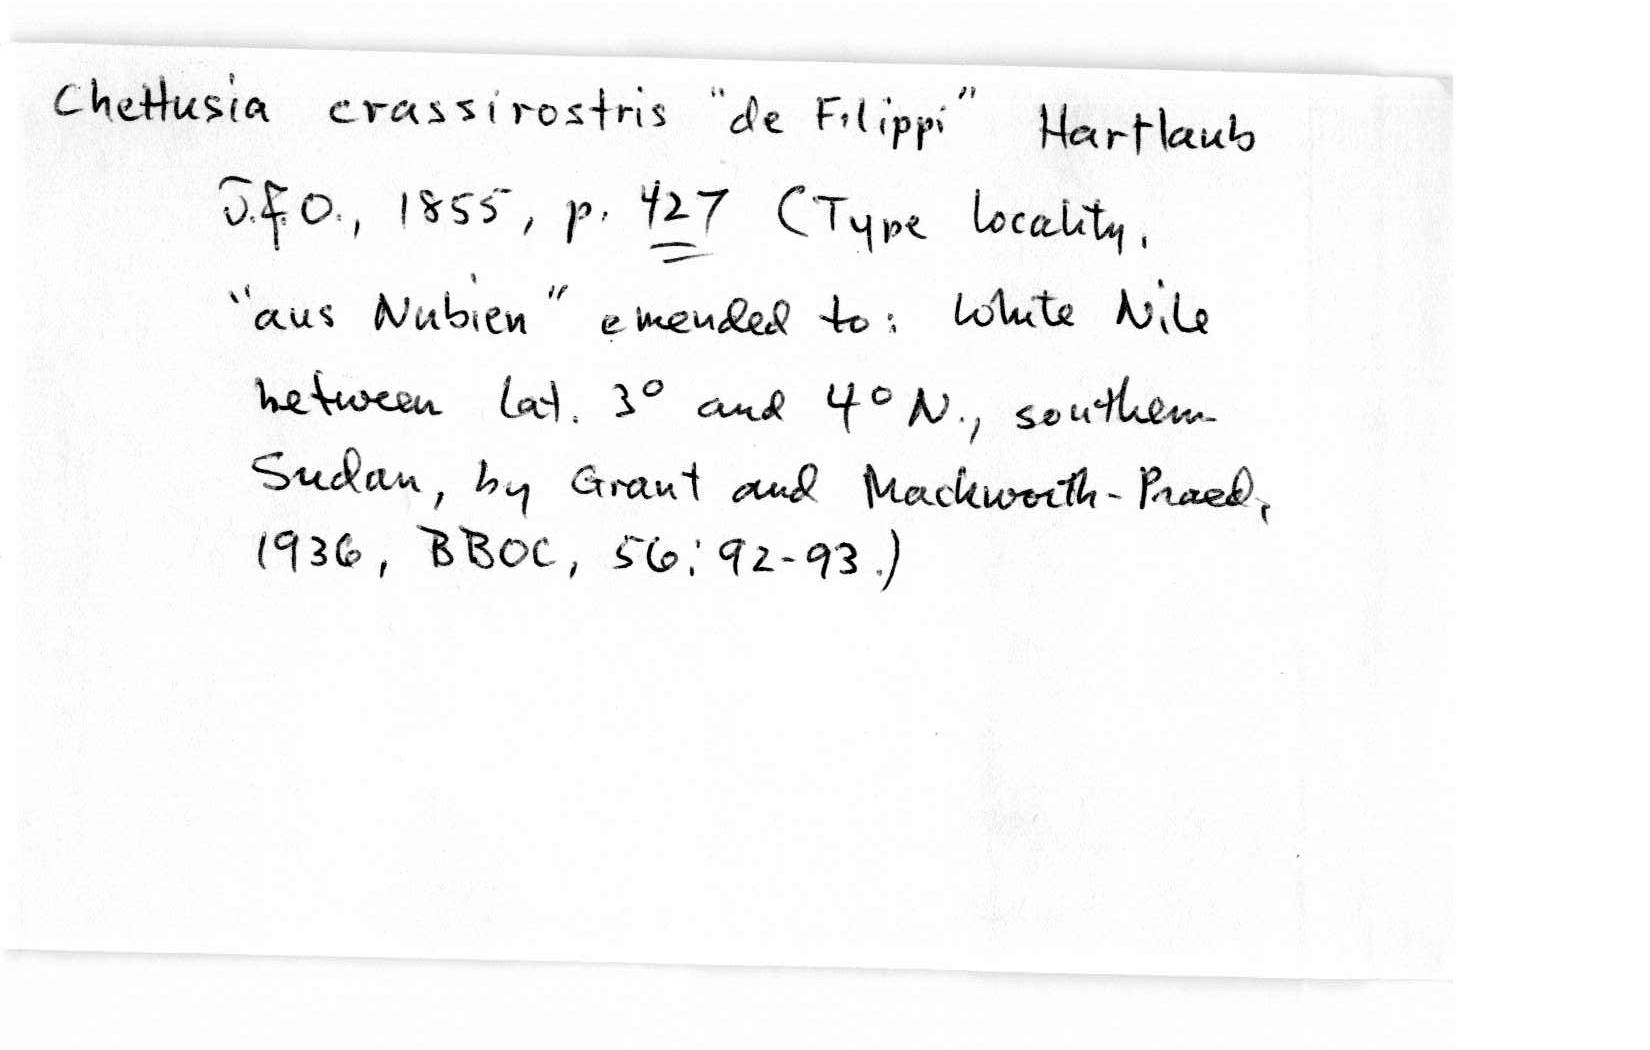 Chettusia crassirostris "de Filippi" Hartlaub
J.f.O., 1855, p. 427 (Type locality,
"aus Nubien" emended to: White Nile
between lat. 3° and 4° N., southern
Sudan, by Grant and Mackworth-Praed,
1936, BBOC, 56: 92-93.)